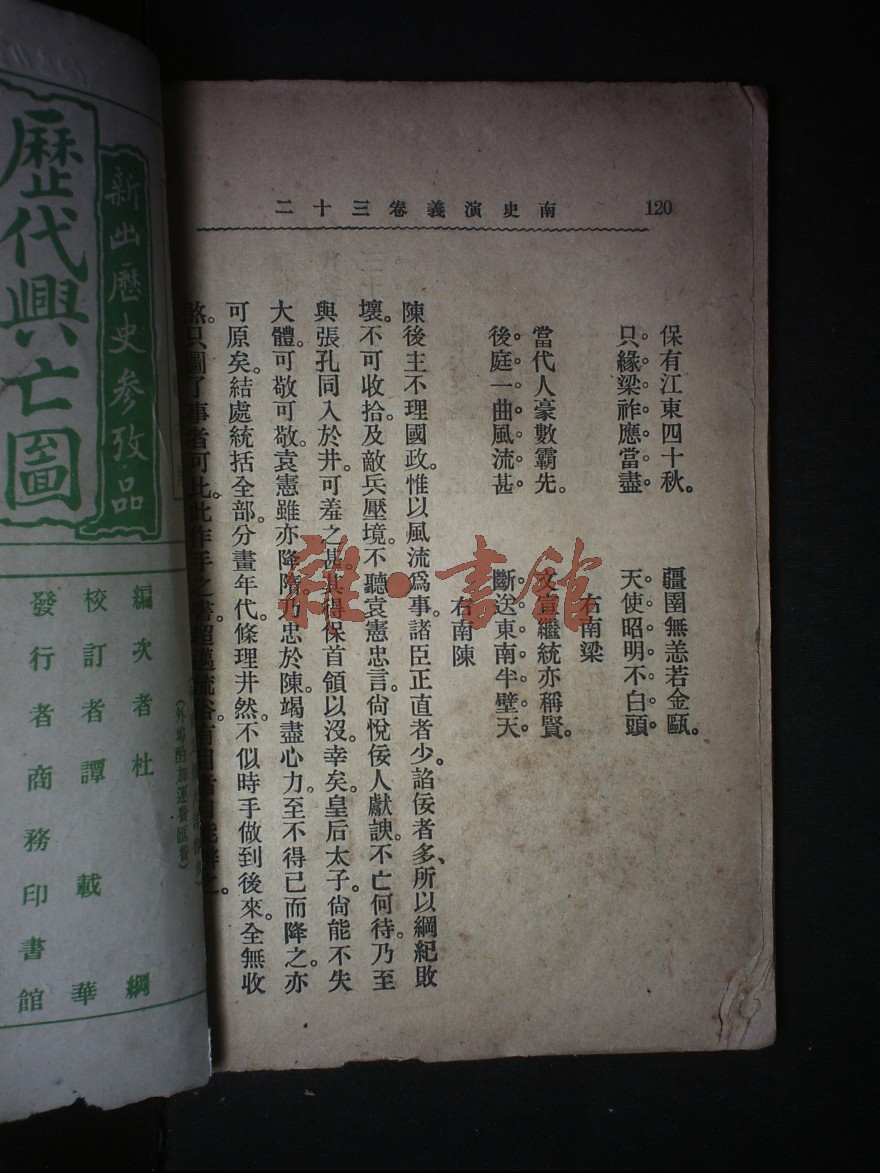 120
南史演義卷三十二
保有江東四十秋。
疆圉無恙若金甌。
只緣梁祚應當盡。
天使昭明不白頭。
右南梁
當代人豪數霸先。
文宣繼統亦稱賢。
後庭一曲風流甚。
斷送東南半壁天。
右南陳
陳後主不理國政。惟以風流爲事。諸臣正直者少。諂佞者多、所以綱紀敗
壞。不可收拾。及敵兵壓境。不聽袁憲忠言。尙悅佞人獻諛。不亡何待。乃至
與張孔同入於井。可羞之甚。其得保首領以沒。幸矣。皇后太子。尙能不失
大體。可敬可敬。袁憲雖亦降隋。乃忠於陳。竭盡心力。至不得已而降之。亦
可原矣。結處統括全部。分畫年代。條理井然。不似時手做到後來。全無收
煞。只圖了事者可比。此作手之書。
雜·書館
新出歷史參攷品
歷代興亡圖
編次者杜綱
校訂者譚載華
發行者商務印書館
(外埠酌加運費匯費)